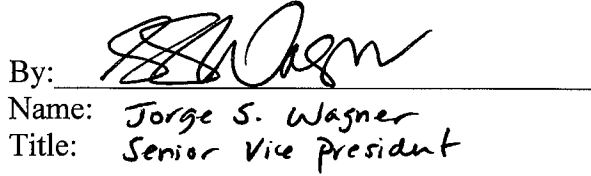 By:
Name: Jorge S. Wagner
Title: Senior Vice President